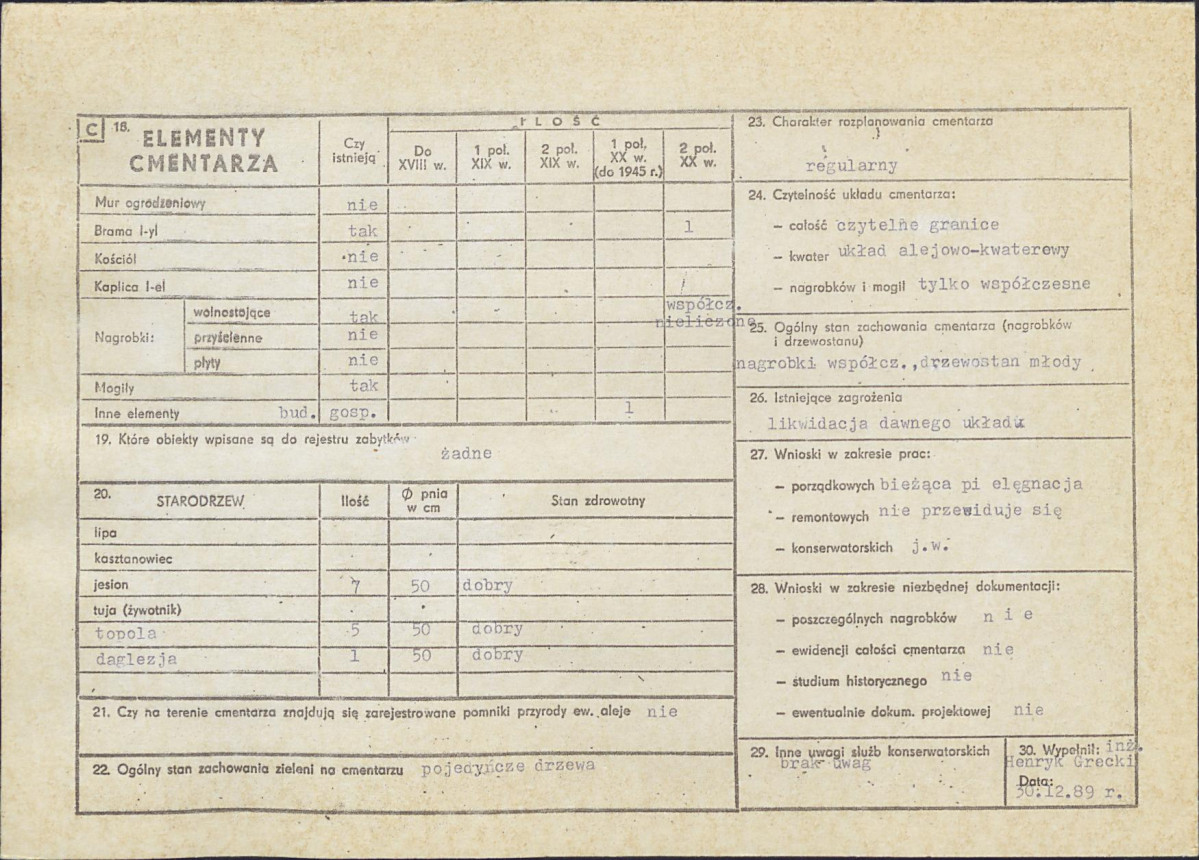 C 18. ELEMENTY CMENTARZA
Czy istnieją
ILOŚĆ
Do XVIII w.
1 poł. XIX w.
2 poł. XIX w.
1 poł. XX w. (do 1945 r.)
2 poł. XX w.
Mur ogrodzeniowy nie
Brama I-yl tak 1
Kościół nie
Kaplica I-el nie
Nagrobki: wolnostojące tak współcz. nieliczone
przyścienne nie
płyty nie
Mogiły tak
Inne elementy bud. gosp. 1
19. Które obiekty wpisane są do rejestru zabytków
żadne
20. STARODRZEW Ilość Ø pnia w cm Stan zdrowotny
lipa
kasztanowiec
jesion 7 50 dobry
tuja (żywotnik)
topola 5 50 dobry
daglezja 1 50 dobry
21. Czy na terenie cmentarza znajdują się zarejestrowane pomniki przyrody ew. aleje nie
22. Ogólny stan zachowania zieleni na cmentarzu pojedyńcze drzewa
23. Charakter rozplanowania cmentarza
regularny
24. Czytelność układu cmentarza:
– całość czytelne granice
– kwater układ alejowo-kwaterowy
– nagrobków i mogił tylko współczesne
25. Ogólny stan zachowania cmentarza (nagrobków
i drzewostanu)
nagrobki współcz.,drzewostan młody
26. Istniejące zagrożenia
likwidacja dawnego układu
27. Wnioski w zakresie prac:
– porządkowych bieżąca pi elęgnacja
– remontowych nie przewiduje się
– konserwatorskich j.w.
28. Wnioski w zakresie niezbędnej dokumentacji:
– poszczególnych nagrobków n i e
– ewidencji całości cmentarza nie
– studium historycznego nie
– ewentualnie dokum. projektowej nie
29. Inne uwagi służb konserwatorskich
brak uwag
30. Wypełnił: inż.
Henryk Grecki
Data:
30.12.89 r.